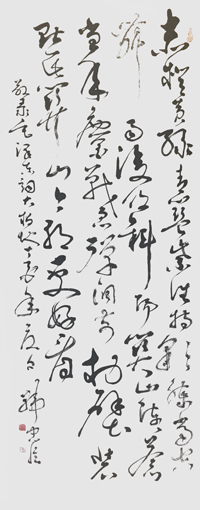 赤橙黄绿青蓝紫谁持彩练当空
舞 雨後復斜阳关山阵々苍
当年鏖战急弹洞前村壁装
点此关山今朝更好看
敬录毛泽东词大柏地